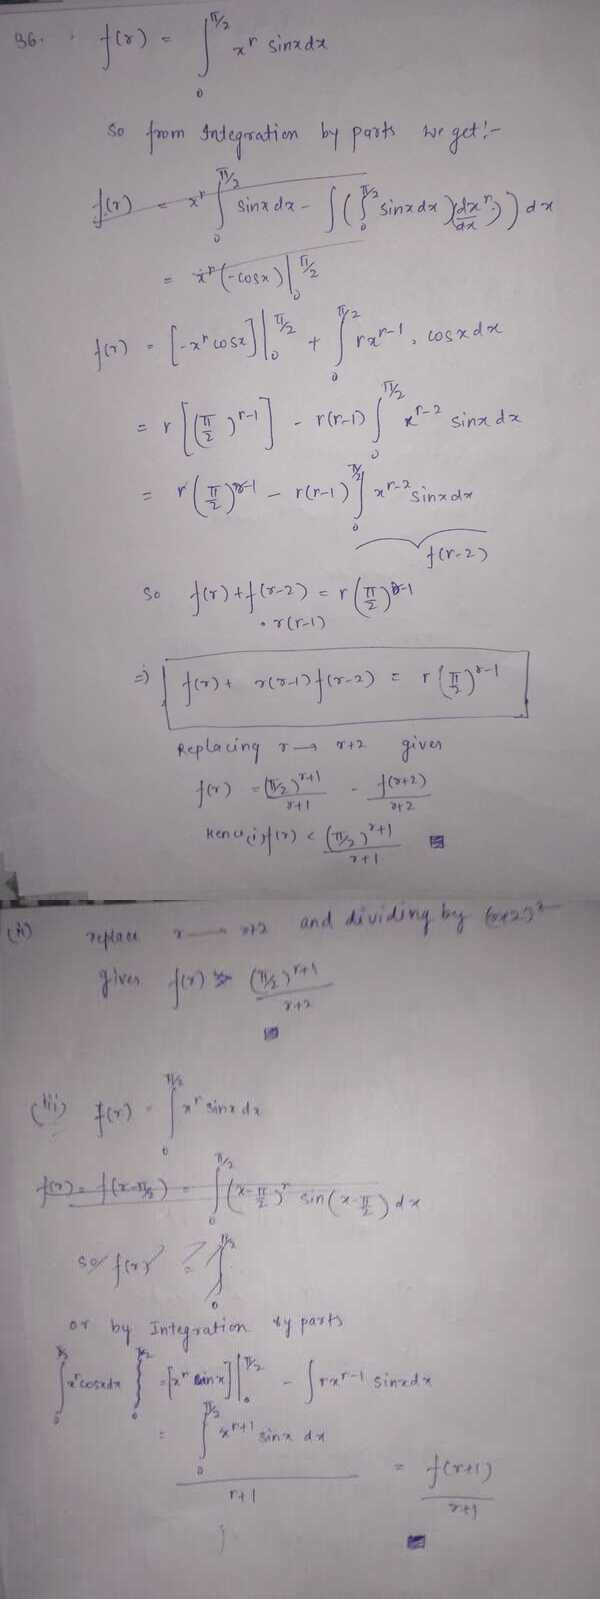 36. f(r) = ∫₀^{π/2} x^r sinx dx
So from Integration by parts we get:-
f(r) = x^r ∫₀^{π/2} sinx dx - ∫(∫₀^{π/2} sinx dx)(dx^r/dx)) dx
= x^r (-cosx)|₀^{π/2}
f(r) = [-x^r cosx]|₀^{π/2} + ∫₀^{π/2} rx^{r-1}. cosx dx
= r[(π/2)^{r-1}] - r(r-1) ∫₀^{π/2} x^{r-2} sinx dx
= r(π/2)^{r-1} - r(r-1) ∫₀^{π/2} x^{r-2} sinx dx
f(r-2)
So f(r) + f(r-2) = r(π/2)^{r-1}
. r(r-1)
=> f(r) + r(r-1) f(r-2) = r(π/2)^{r-1}
Replacing r → r+2 gives
f(r) = (π/2)^{r+1}/r+1 - f(r+2)/r+2
Hence, (i) f(r) < (π/2)^{r+1}/r+1
(ii) replace r → r+2 and dividing by (r+2)²
gives f(r) > (π/2)^{r+1}/r+2
(iii) f(r) = ∫₀^{π/2} x^r sinx dx
f(r) = f(x-π/2) = ∫₀^{π/2} (x-π/2)^r sin(x-π/2) dx
so f(r) = ∫₀^{π/2}
or by Integration by parts
∫₀^{π/2} x^r cosx dx ∫₀^{π/2} = [x^r sinx]|₀^{π/2} - ∫ rx^{r-1} sinx dx
= ∫₀^{π/2} x^{r+1} sinx dx / r+1 = f(r+1)/r+1